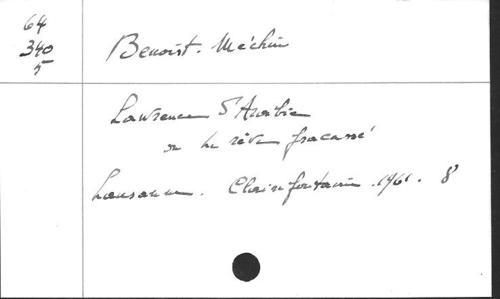 64
340
5
Benoist-Méchin
Lawrence d'Arabie
ou le rêve fracassé
Lausanne. Clairefontaine. 1961. 8°